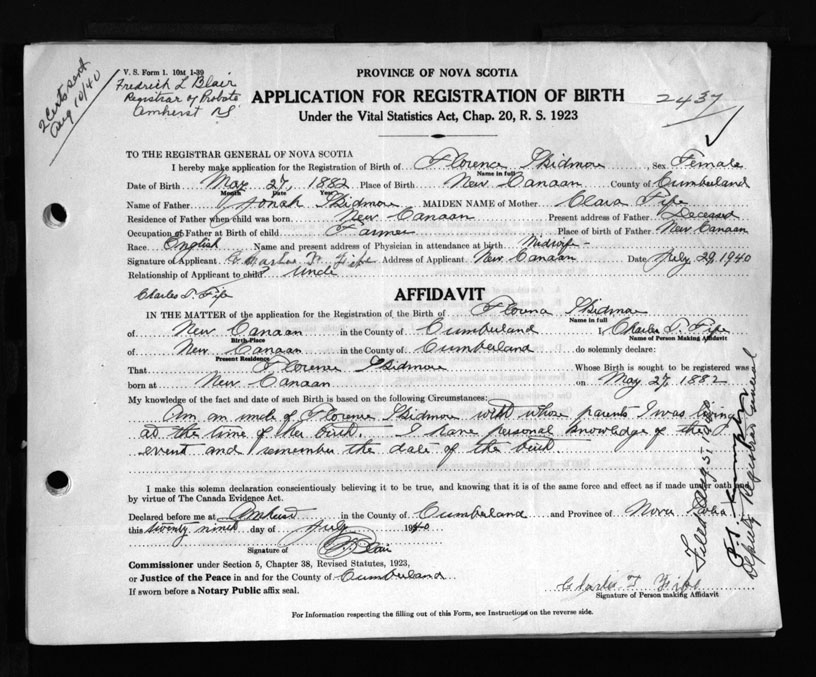 2 Certs sent
Aug 10/40
V. S. Form 1. 10M 1-39
Fredrick L Blair
Registrar of Probate
Amherst NS
PROVINCE OF NOVA SCOTIA
APPLICATION FOR REGISTRATION OF BIRTH
2437
Under the Vital Statistics Act, Chap. 20, R. S. 1923
TO THE REGISTRAR GENERAL OF NOVA SCOTIA
I hereby make application for the Registration of Birth of Florence Skidmore, Sex Female
Name in full
Date of Birth May 27, 1882 Place of Birth New Canaan County of Cumberland
Month Date Year
Name of Father Jonah Skidmore MAIDEN NAME of Mother Clara Fife
Residence of Father when child was born New Canaan Present address of Father Deceased
Occupation of Father at Birth of child Farmer Place of birth of Father New Canaan
Race English Name and present address of Physician in attendance at birth Midwife -
Signature of Applicant Charles T. Fife Address of Applicant New Canaan Date July 29 1940
Relationship of Applicant to child? Uncle
Charles T. Fife
AFFIDAVIT
IN THE MATTER of the application for the Registration of the Birth of Skidmore
Name in full
of New Canaan in the County of Cumberland I, Charles T. Fife
Birth Place Name of Person Making Affidavit
of New Canaan in the County of Cumberland do solemnly declare:
Present Residence
That Florence Skidmore Whose Birth is sought to be registered was
born at New Canaan on May 27, 1882
My knowledge of the fact and date of such Birth is based on the following Circumstances:
Am an uncle of Florence Skidmore with whose parents I was living
at the time of her birth. I have personal knowledge of the
event and remember the date of the birth
I make this solemn declaration conscientiously believing it to be true, and knowing that it is of the same force and effect as if made under oath and
by virtue of The Canada Evidence Act.
Declared before me at Amherst in the County of Cumberland and Province of Nova Scotia
this twenty ninth day of July 1940
Signature of Blair
Commissioner under Section 5, Chapter 38, Revised Statutes, 1923,
or Justice of the Peace in and for the County of Cumberland
If sworn before a Notary Public affix seal.
Charles T. Fife
Signature of Person making Affidavit
For Information respecting the filling out of this Form, see Instructions on the reverse side.
Filed Aug. 5, 1940
Deputy Registrar General